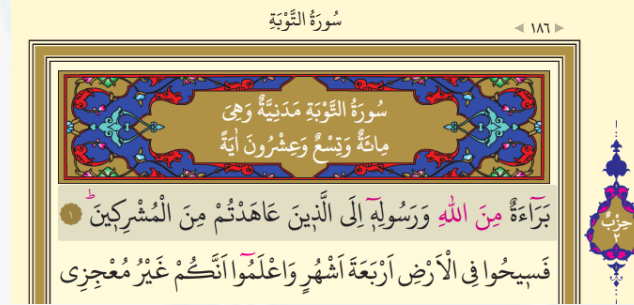 سُورَةُ التَّوْبَةِ
١٨٦
سُورَةُ التَّوْبَةِ مَدَنِيَّةٌ وَهِىَ
مِائَةٌ وَتِسْعٌ وَعِشْرُونَ اٰيَةً
بَرَٓاءَةٌ مِنَ اللّٰهِ وَرَسُولِهٖٓ اِلَى الَّذٖينَ عَاهَدْتُمْ مِنَ الْمُشْرِكٖينَۜ ١
فَسٖيحُوا فِى الْاَرْضِ اَرْبَعَةَ اَشْهُرٍ وَاعْلَمُٓوا اَنَّكُمْ غَيْرُ مُعْجِزِى
حِزْبٌ
٢